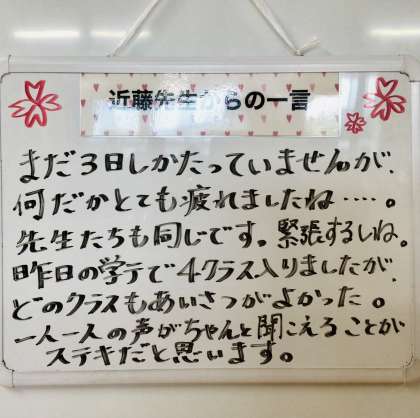 近藤先生からの一言
まだ3日しかたっていませんが、
何だかとても疲れましたね‥‥。
先生たちも同じです。緊張するしね。
昨日の学テで4クラス入りましたが、
どのクラスもあいさつがよかった。
一人一人の声がちゃんと聞こえることが
ステキだと思います。